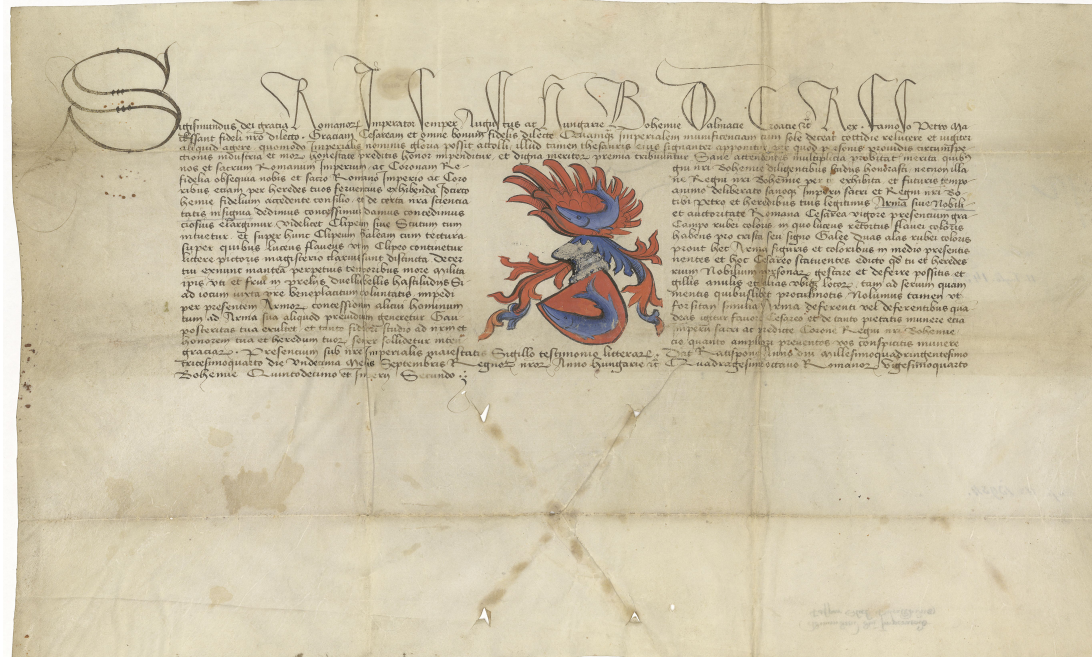 Sigismundus dei gracia Romanorum Imperator Semper Augustus ac Hungarie Bohemie Dalmacie Croacie etc Rex Famoso Petro
fideli nro dilecto Graciam Cesaream et omne bonum fidelis dilecte Quamquam Imperialem munificenciam cum sole deceat cottidie relucere et iugiter
aliquid agere quomodo Imperialis nominis gloria possit attolli illud tamen thesauris eius signanter apponitur per quod personis providis circumspe
ctionis industria et morum honestate preditis honor impenditur et digna meritorum premia tribuuntur Sane attendentes multiplicia probitatis merita quibus
nos et sacrum Romanum Imperium ac Coronam Regni nri Bohemie diligentibus studiis honorasti necnon illa
fidelia obsequia nobis et sacro Romano Imperio ac Corone Regni nri Bohemie per te exhibita et futuris tempo
ribus eciam per heredes tuos fervencius exhibenda Idcirco animo deliberato sanoque Imperii sacri et Regni nri Bo
hemie fidelium accedente consilio et de certa nra sciencia tibi Petro et heredibus tuis legitimis Arma sive Nobili
tatis insignia dedimus concessimus damus concedimus et auctoritate Romana Cesarea vigore presencium gra
ciosius elargimur Videlicet Clipeum sive Scutum tum Campo rubei coloris in quo lucius retortus flavei coloris
intuetur Et super hunc Clipeum Galeam cum tectura habens pro crista seu signo Galee Duas alas rubei coloris
super quibus lucius flaveus utin Clipeo continetur prout hec Arma figuris et coloribus in medio presentis
littere pictoris magisterio clarius sunt distincta Decer nentes et hoc Cesareo statuentes edicto quod tu et heredes
tui exnunc mantea perpetuis temporibus more milita rium Nobilium personarum gestare et deferre possitis et
in prelus duellibellis hastiludiis Si gillis anulis et alias ubique locorum tam ad serium quam
ad iocum iuxta vre beneplacitum voluntatis impedi mentis quibuslibet proculmotis Nolumus tamen ut
per presentem Armorum concessionem alicui hominum forsitan similia Arma deferenti vel deferentibus qua
tum ad Arma sua aliquod preiudicium generetur Gau deas igitur favore Cesareo et de tanto pietatis munere etia
posteritas tua exultet et tanto fidelori studio ad nrm et Imperii sacri ac predicte Corone Regni nri Bohemie
honorem tua et heredum tuorum semper sollicitetur inten cio quanto ampliori preventos vos conspicitis munere
graciarum Presencium sub nre Imperialis maiestatis Sigillo testimonio litterarum Dat Ratispone Anno dni Millesimoquadringentesimo
tricesimoquarto die Undecima Mesis Septembris Regnorum nrorum Anno Hungarie etc Quadragesimooctavo Romanorum vigesimoquarto
Bohemie Quintodecimo et Imperii Secundo